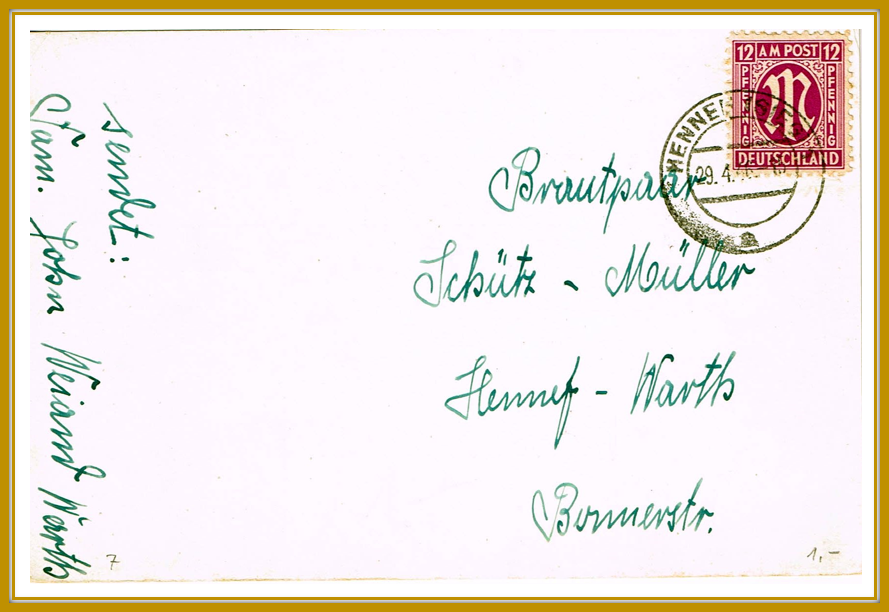 12 AM POST 12
PFENNIG
PFENNIG
DEUTSCHLAND
HENNEF
29.4.
a
Brautpaar
Schütz - Müller
Hennef - Warth
Bonnerstr.
sendet:
Fam. John Weiand Warth
7
1,-